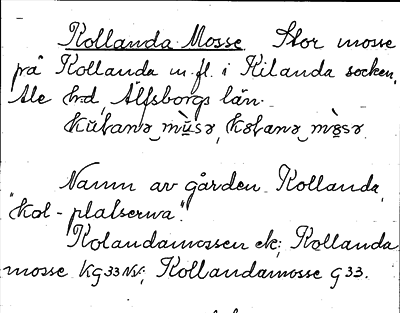 Kollanda Mosse Stor mosse
på Kollanda m.fl. i Kilanda socken,
Ale hd, Älfsborgs län.
Namn av gården Kollanda,
"kol-platserna."
Kolandamossen ek; Kollanda
mosse Kg33NV; Kollandamosse G33.